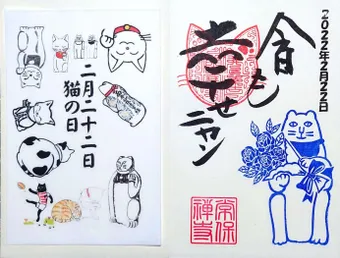 二月二十二日
猫の日
2022年2月22日
今日も
幸せニャン
常保
禅寺